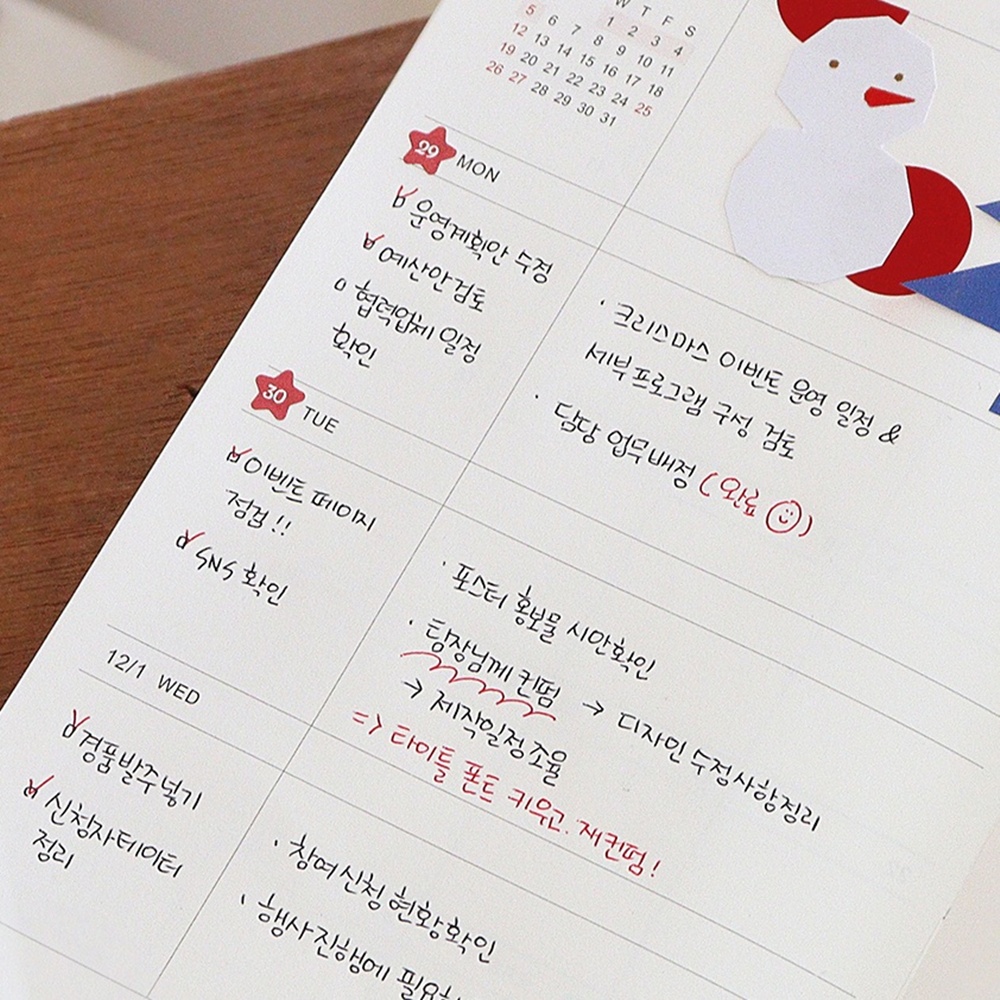 W T F S
5 6 7 8 9 10 11
1 2 3 4
12 13 14 15 16 17 18
19 20 21 22 23 24 25
26 27 28 29 30 31
29 MON
운영계획안 수정
예산안 검토
협력업체 일정
확인
· 크리스마스 이벤트 운영 일정 &
세부프로그램 구성 검토
· 담당 업무배정 (완료 ☺)
30 TUE
이벤트 페이지
점검 !!
SNS 확인
· 포스터 홍보물 시안확인
· 팀장님께 컨펌 → 디자인 수정사항정리
→ 제작일정 조율
=> 타이틀 폰트 키우고. 재컨펌!
12/1 WED
경품발주넣기
신청자데이터
정리
· 참여신청 현황확인
· 행사진행에 필요한